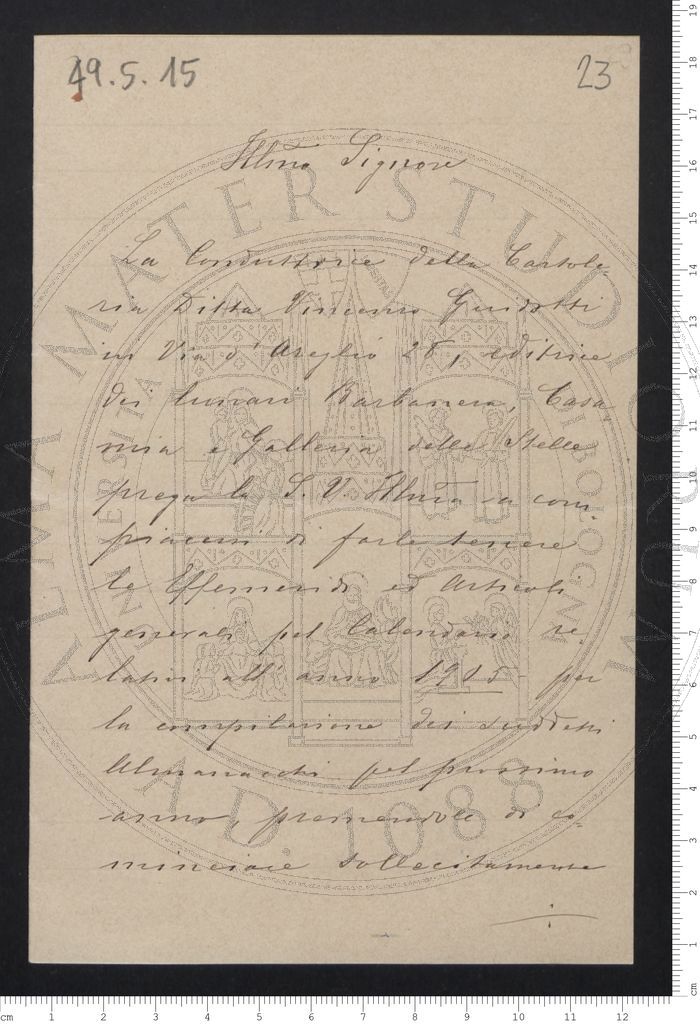 49.5.15
23
Illmo Signore
La Conduttrice della Cartole-
ria Ditta Vincenzo Guidotti
in Via d'Azeglio 28, editrice
dei lunari Barbanera, Casa-
mia e Galleria delle Stelle
prega la S. V. Illma a com-
piacersi di farle tenere
le Effemeridi ed Articoli
generali pel Calendario re-
lativi all'anno 1915 per
la compilazione dei suddetti
Almanacchi pel prossimo
anno, premendole di co-
minciare sollecitamente
ALMA MATER STUDIORUM
A.D. 1088